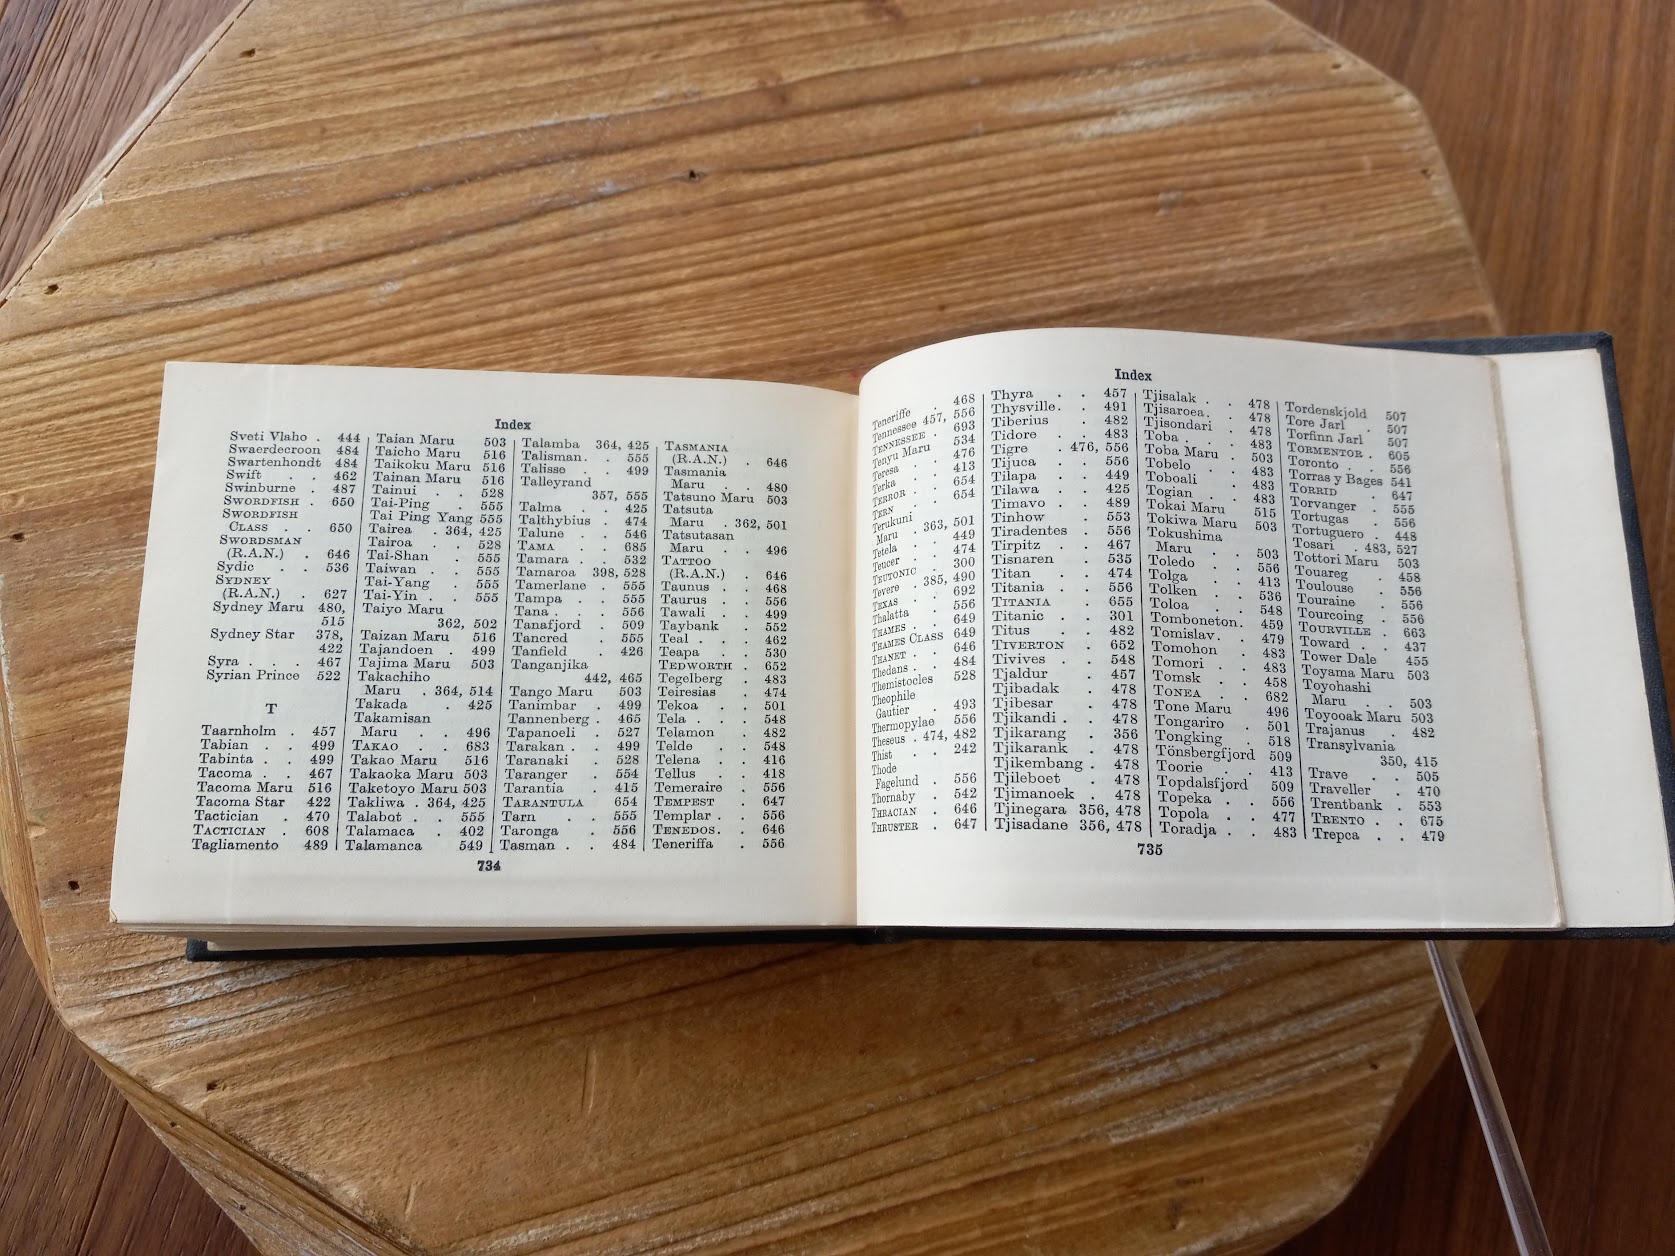 Index
Sveti Vlaho . 444
Swaerdecroon 484
Swartenhondt 484
Swift . . 462
Swinburne . 487
SWORDFISH . 650
SWORDFISH
CLASS . . 650
SWORDSMAN
(R.A.N.) . 646
Sydic . . 536
SYDNEY
(R.A.N.) . 627
Sydney Maru 480,
515
Sydney Star 378,
422
Syra . . . 467
Syrian Prince 522
T
Taarnholm . 457
Tabian . . 499
Tabinta . . 499
Tacoma . . 467
Tacoma Maru 516
Tacoma Star 422
Tactician . 470
TACTICIAN . 608
Tagliamento 489
Taian Maru 503
Taicho Maru 516
Taikoku Maru 516
Tainan Maru 516
Tainui . . 528
Tai-Ping . 555
Tai Ping Yang 555
Tairea . 364, 425
Tairoa . . 528
Tai-Shan . 555
Taiwan . . 555
Tai-Yang . 555
Tai-Yin . . 555
Taiyo Maru
362, 502
Taizan Maru 516
Tajandoen . 499
Tajima Maru 503
Takachiho
Maru . 364, 514
Takada . . 425
Takamisan
Maru . . 496
TAKAO . . 683
Takao Maru 516
Takaoka Maru 503
Taketoyo Maru 503
Takliwa . 364, 425
Talabot . . 555
Talamaca . 402
Talamanca 549
Talamba 364, 425
Talisman . . 555
Talisse . . 499
Talleyrand
357, 555
Talma . . 425
Talthybius . 474
Talune . . 546
TAMA . . 685
Tamara . . 532
Tamaroa 398, 528
Tamerlane . 555
Tampa . . 555
Tana . . . 556
Tanafjord . 509
Tancred . 555
Tanfield . 426
Tanganjika
442, 465
Tango Maru 503
Tanimbar . 499
Tannenberg . 465
Tapanoeli . 527
Tarakan . . 499
Taranaki . 528
Taranger . 554
Tarantia . 415
TARANTULA 654
Tarn . . 555
Taronga . 556
Tasman . . 484
TASMANIA
(R.A.N.) . 646
Tasmania
Maru . . 480
Tatsuno Maru 503
Tatsuta
Maru . 362, 501
Tatsutasan
Maru . . 496
TATTOO
(R.A.N.) . 646
Taunus . . 468
Taurus . . 556
Tawali . . 499
Taybank . 552
Teal . . . 462
Teapa . . 530
TEDWORTH . 652
Tegelberg . 483
Teiresias . 474
Tekoa . . 501
Tela . . . 548
Telamon . 482
Telde . . 548
Telena . . 416
Tellus . . 418
Temeraire . 556
TEMPEST . 647
Templar . . 556
TENEDOS . . 646
Teneriffa . 556
734
Index
Teneriffe . 468
Tennessee 457, 556
TENNESSEE . 693
Tenyu Maru 534
Teresa . . 476
Terka . . 413
TERROR . . 654
TERN . . 654
Terukuni
Maru . 363, 501
Tetela . . 449
Teucer . . 474
TEUTONIC . 300
Tevere . 385, 490
TEXAS . . 692
Thalatta . 556
THAMES . . 649
THAMES CLASS 649
THANET . . 646
Thedans . . 484
Themistocles 528
Theophile
Gautier . 493
Thermopylae 556
Theseus . 474, 482
Thist . . 242
Thode
Fagelund . 556
Thornaby . 542
THRACIAN . 646
THRUSTER . 647
Thyra . . 457
Thysville . . 491
Tiberius . 482
Tidore . . 483
Tigre . 476, 556
Tijuca . . 556
Tilapa . . 449
Tilawa . . 425
Timavo . . 489
Tinhow . . 553
Tiradentes . 556
Tirpitz . . 467
Tisnaren . 535
Titan . . 474
Titania . . 556
TITANIA . . 655
Titanic . . 301
Titus . . 482
TIVERTON . 652
Tivives . . 548
Tjaldur . . 457
Tjibadak . 478
Tjibesar . . 478
Tjikandi . . 478
Tjikarang . 356
Tjikarank . 478
Tjikembang . 478
Tjileboet . 478
Tjimanoek . 478
Tjinegara 356, 478
Tjisadane 356, 478
Tjisalak . . 478
Tjisaroea . . 478
Tjisondari . 478
Toba . . . 483
Toba Maru . 503
Tobelo . . 483
Toboali . . 483
Togian . . 483
Tokai Maru 515
Tokiwa Maru 503
Tokushima
Maru . . 503
Toledo . . 556
Tolga . . 413
Tolken . . 536
Toloa . . 548
Tomboneton . 459
Tomislav . . 479
Tomohon . 483
Tomori . . 483
Tomsk . . 458
TONEA . . 682
Tone Maru 496
Tongariro . 501
Tongking . 518
Tönsbergfjord 509
Toorie . . 413
Topdalsfjord 509
Topeka . . 556
Topola . . 477
Toradja . . 483
Tordenskjold 507
Tore Jarl . 507
Torfinn Jarl 507
TORMENTOR . 605
Toronto . . 556
Torras y Bages 541
TORRID . . 647
Torvanger . 555
Tortugas . 556
Tortuguero . 448
Tosari . 483, 527
Tottori Maru 503
Touareg . . 458
Toulouse . 556
Touraine . 556
Tourcoing . 556
TOURVILLE . 663
Toward . . 437
Tower Dale 455
Toyama Maru 503
Toyohashi
Maru . . 503
Toyooak Maru 503
Trajanus . 482
Transylvania
350, 415
Trave . . 505
Traveller . 470
Trentbank . 553
TRENTO . . 675
Trepca . . 479
735